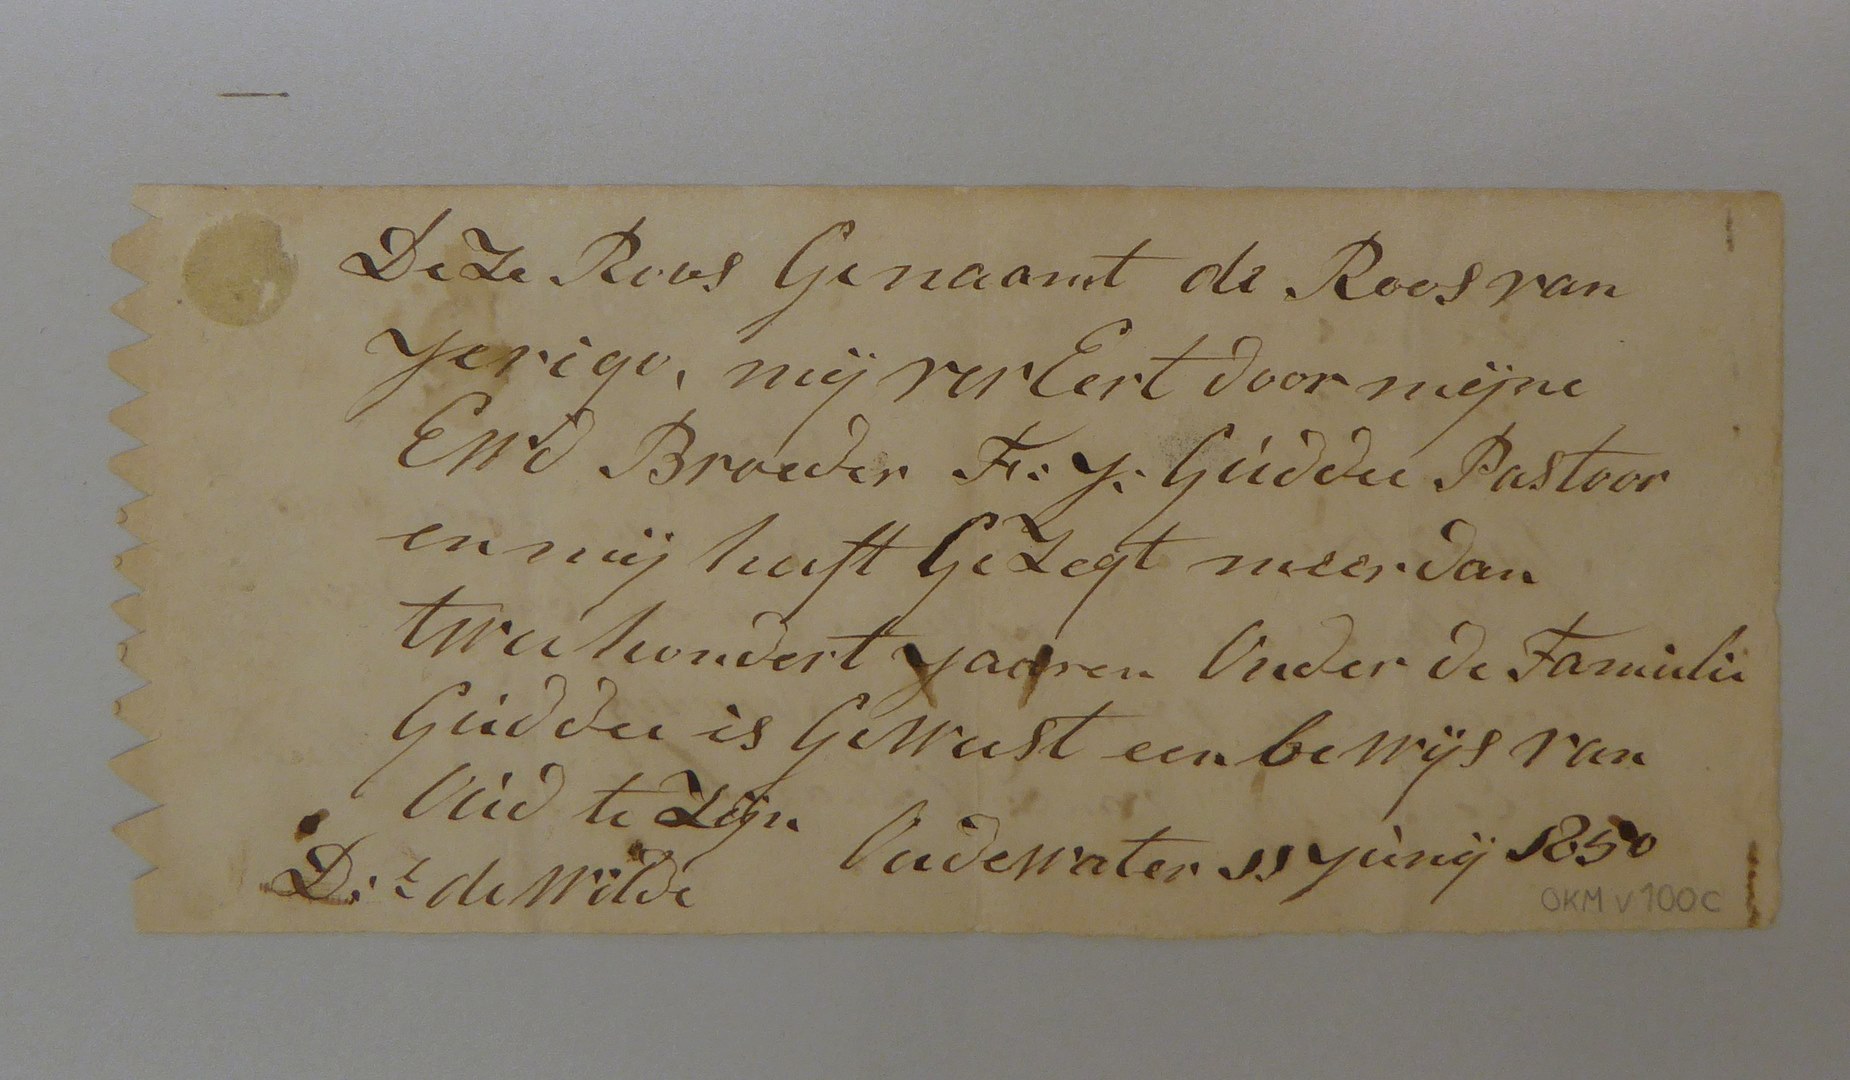 DeZe Roos Genaamt de Roos van
Yerigo, mij verEert door mijne
EWd Broeder F: Y: Guddee Pastoor
en mij heeft GeZegt meer dan
twee hondert yaaren Onder de Familie
Guddee is GeWeest een beWijs van
Oud te Zijn
OudeWater 11 Yunij 1850
D: de Wilde
OKM v100c